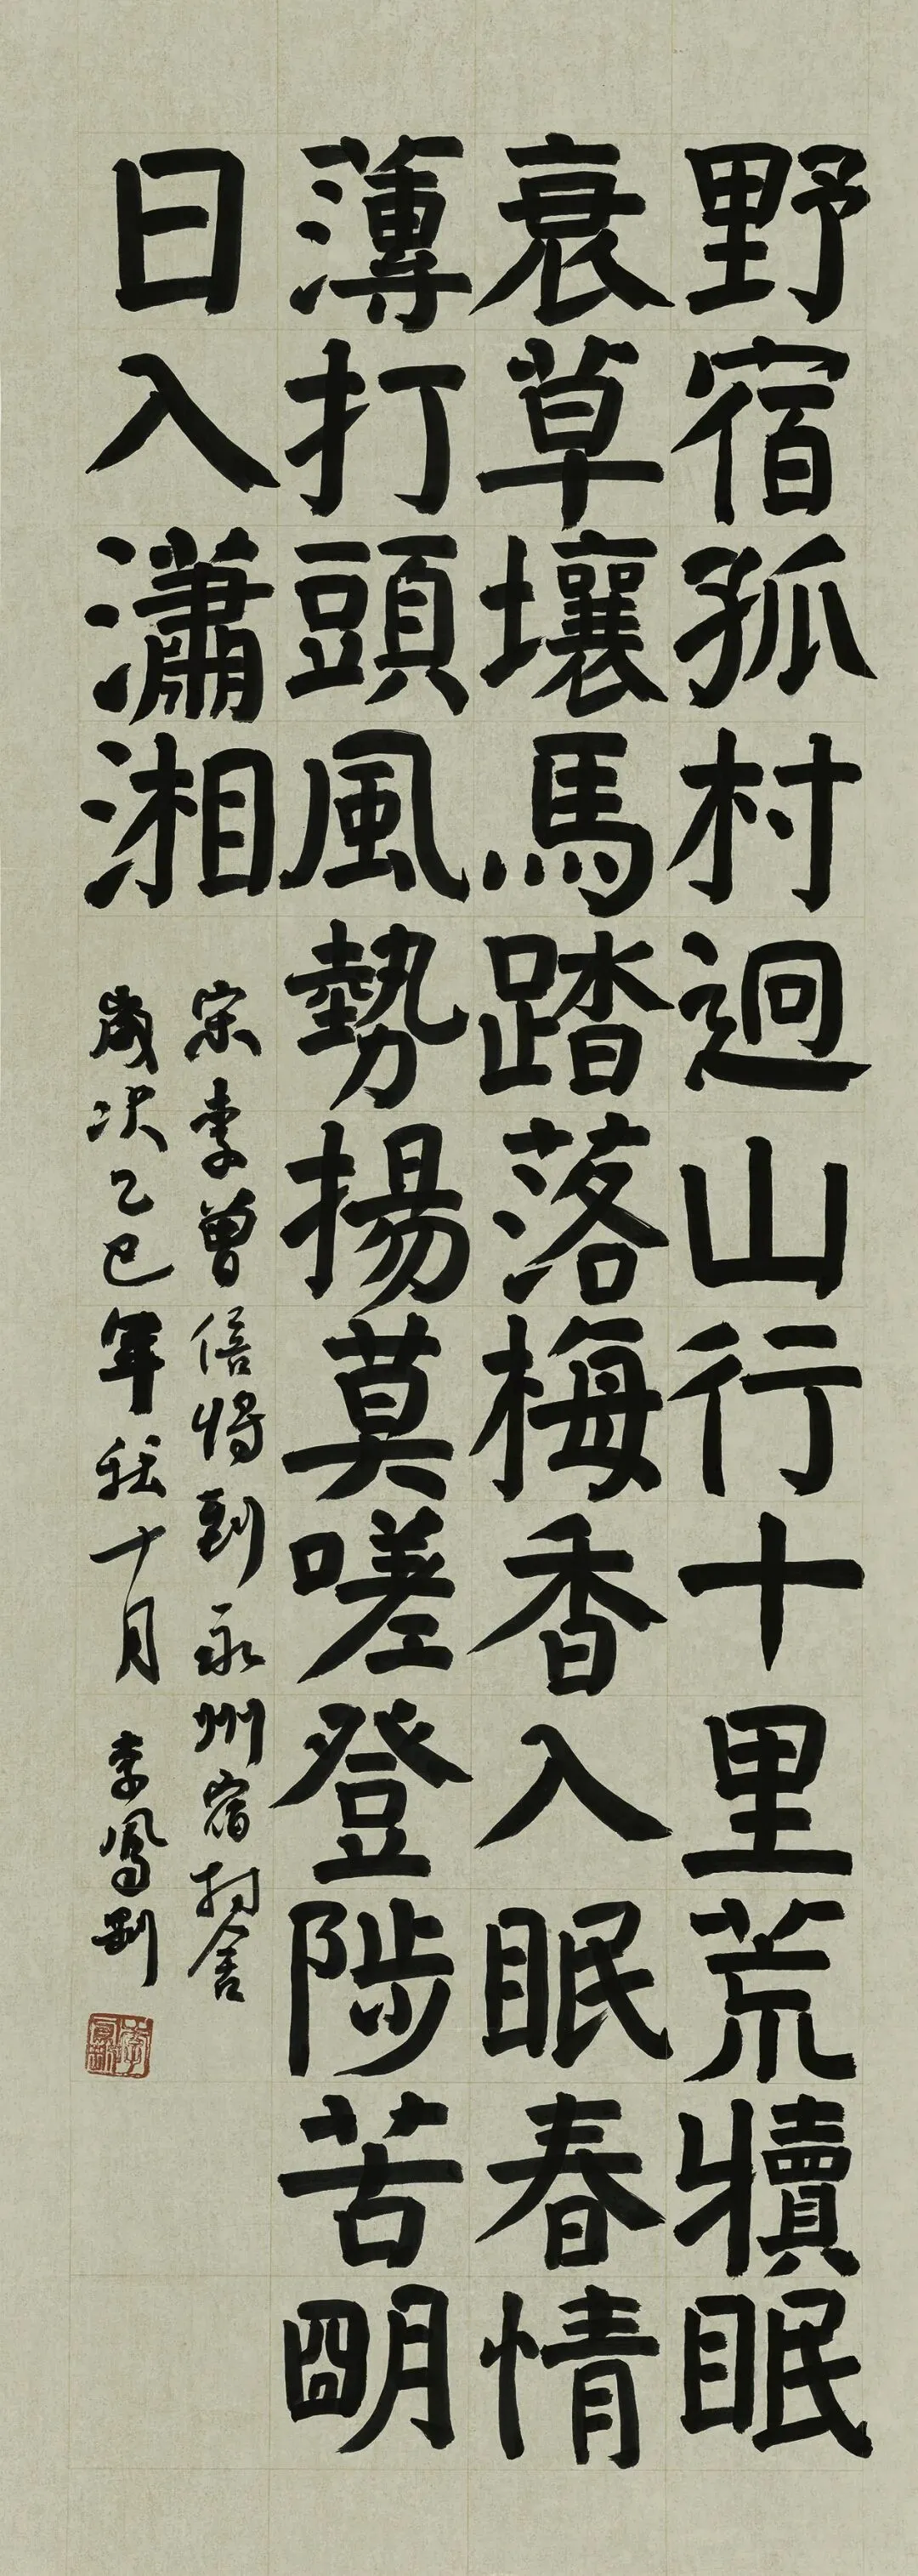 野宿孤村迥山行十里荒犢眠
衰草壤馬踏落梅香入眠春情
薄打頭風勢揚莫嗟登陟苦明
日入瀟湘
宋李曾伯將到永州宿村舍
歲次乙巳年秋十月李鳳剛